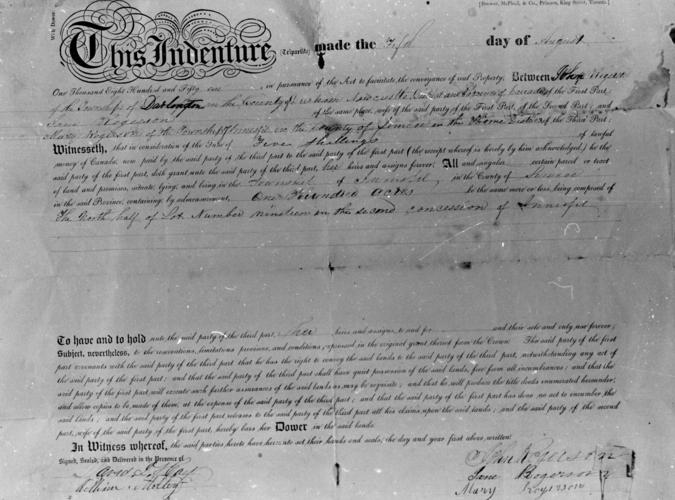 With Dower
[Brewer, McPhail, & Co., Printers, King Street, Toronto.]
This Indenture (Tripartite) made the Fifth day of August
One Thousand Eight Hundred and Fifty one in pursuance of the Act to facilitate the conveyance of real Property, Between John
of the Township of Darlington in the County of Durham Newcastle District and Province of Canada of the First Part,
Jane Rogerson of the same place, wife of the said party of the First Part, of the Second Part; and
Mary Rogerson of the Township of Innisfil in the County of Simcoe in the Home District of the Third Part;
Witnesseth, that in consideration of the Sum of Five Shillings of lawful
money of Canada, now paid by the said party of the third part to the said party of the first part (the receipt whereof is hereby by him acknowledged,) he the
said party of the first part, doth grant unto the said party of the third part, her heirs and assigns forever; All and singular certain parcel or tract
of land and premises, situate, lying, and being in the Township of Innisfil, in the County of Simcoe
in the said Province, containing by admeasurement, One Hundred acres be the same more or less, being composed of
The North half of Lot Number nineteen in the second concession of Innisfil
To have and to hold unto the said party of the third part, her heirs and assigns, to and for and their sole and only use forever;
Subject, nevertheless, to the reservations, limitations, provisoes, and conditions, expressed in the original grant thereof from the Crown. The said party of the first
part covenants with the said party of the third part that he has the right to convey the said lands to the said party of the third part, notwithstanding any act of
the said party of the first part; and that the said party of the third part shall have quiet possession of the said lands, free from all incumbrances; and that the
said party of the first part, will execute such further assurances of the said lands as may be requisite; and that he will produce the title deeds enumerated hereunder;
and allow copies to be made of them, at the expense of the said party of the third part; and that the said party of the first part has done no act to encumber the
said lands; and the said party of the first part releases to the said party of the third part all his claims upon the said lands; and the said party of the second
part, wife of the said party of the first part, hereby bars her Dower in the said lands.
In Witness whereof, the said parties hereto have hereunto set their hands and seals, the day and year first above written:
Signed, Sealed, and Delivered in the Presence of
Rogerson
Jane Rogerson
William
Mary Rogerson